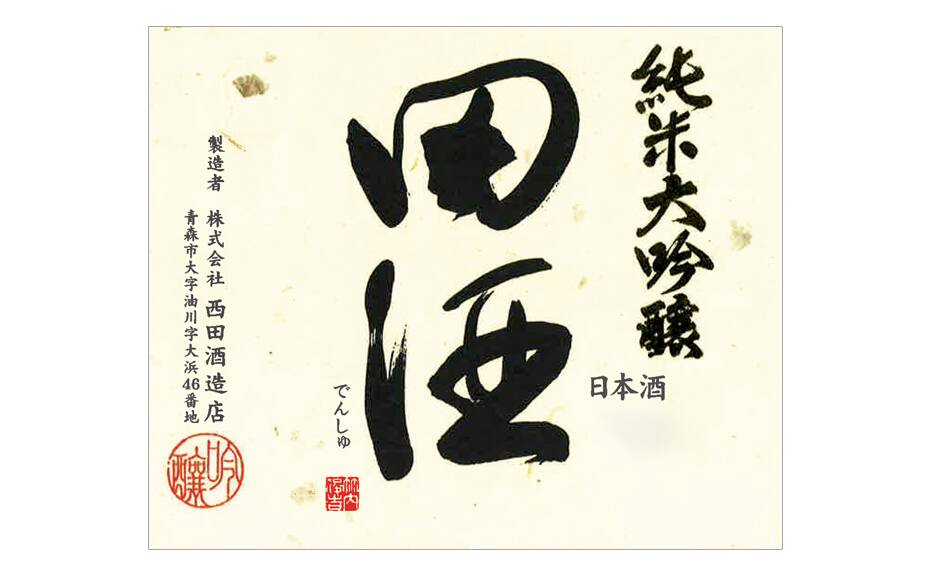 純米大吟醸
日本酒
田酒
でんしゅ
製造者 株式会社 西田酒造店
青森市大字油川字大浜46番地
吟醸